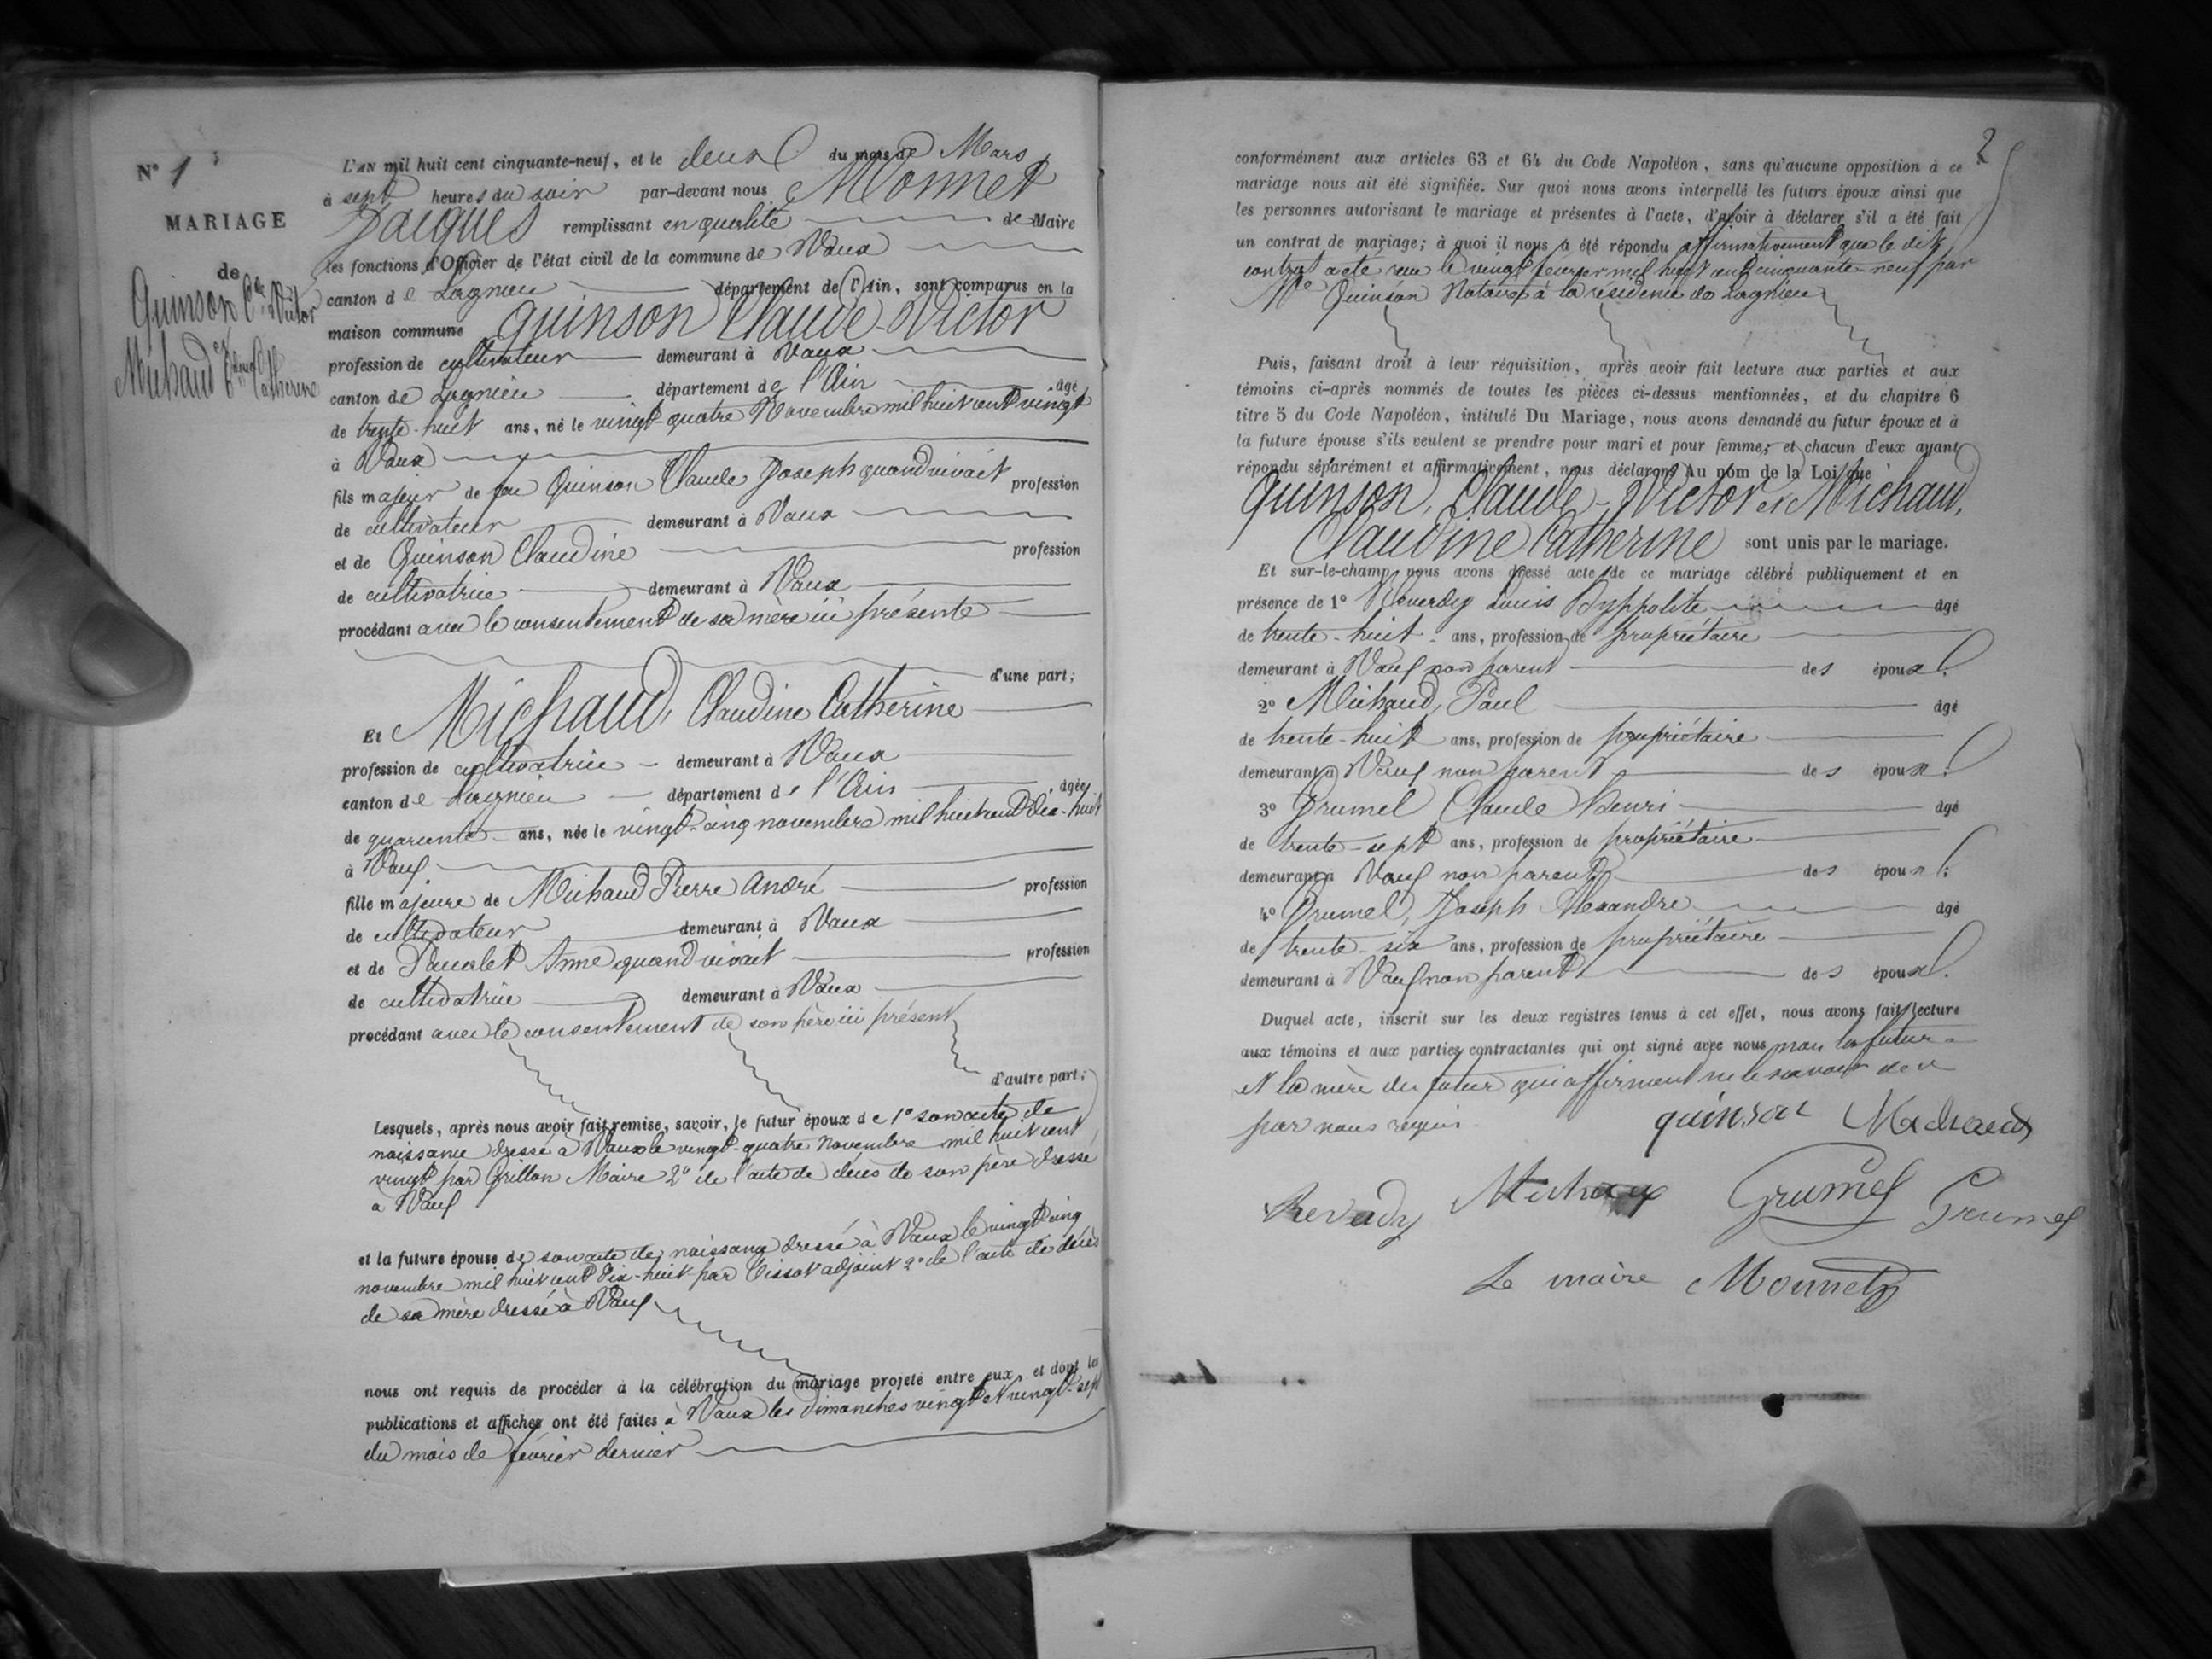 N° 1
MARIAGE
de
Quinson Cde Victor
Michaud Catherine
L'AN mil huit cent cinquante-neuf, et le deux du mois de Mars
à sept heures du soir par-devant nous Monnet
Jacques remplissant en qualité de Maire
les fonctions d'Officier de l'état civil de la commune de Vaux
canton de Lagnieu département de l'Ain, sont comparus en la
maison commune Quinson Claude-Victor
profession de cultivateur demeurant à Vaux
canton de Lagnieu département de l'Ain âgé
de trente-huit ans, né le vingt-quatre Novembre mil huit cent vingt
à Vaux
fils majeur de feu Quinson Claude Joseph quand vivait profession
de cultivateur demeurant à Vaux
et de Quinson Claudine profession
de cultivatrice demeurant à Vaux
procédant avec le consentement de sa mère ici présente
d'une part;
Et Michaud, Claudine Catherine
profession de cultivatrice demeurant à Vaux
canton de Lagnieu département de l'Ain âgée
de quarante ans, née le vingt-cinq novembre mil huit cent dix-huit
à Vaux
fille majeure de Michaud Pierre André profession
de cultivateur demeurant à Vaux
et de Anne quand vivait profession
de cultivatrice demeurant à Vaux
procédant avec le consentement de son père ici présent
d'autre part;
Lesquels, après nous avoir fait remise, savoir, le futur époux de 1° son acte de
naissance dressé à Vaux le vingt-quatre Novembre mil huit cent
vingt par Grillon Maire 2° de l'acte de décès de son père dressé
à Vaux
et la future épouse de son acte de naissance dressé à Vaux le vingt cinq
novembre mil huit cent dix-huit par Tissot adjoint 2° de l'acte de décès
de sa mère dressé à Vaux
nous ont requis de procéder à la célébration du mariage projeté entre eux, et dont les
publications et affiches ont été faites à Vaux les dimanches vingt et vingt-sept
du mois de février dernier
2
conformément aux articles 63 et 64 du Code Napoléon, sans qu'aucune opposition à ce
mariage nous ait été signifiée. Sur quoi nous avons interpellé les futurs époux ainsi que
les personnes autorisant le mariage et présentes à l'acte, d'avoir à déclarer s'il a été fait
un contrat de mariage; à quoi il nous a été répondu affirmativement que le dit
contrat acte reçu le vingt février mil huit cent cinquante-neuf par
Me Quinson Notaire à la résidence de Lagnieu
Puis, faisant droit à leur réquisition, après avoir fait lecture aux parties et aux
témoins ci-après nommés de toutes les pièces ci-dessus mentionnées, et du chapitre 6
titre 5 du Code Napoléon, intitulé Du Mariage, nous avons demandé au futur époux et à
la future épouse s'ils veulent se prendre pour mari et pour femme; et chacun d'eux ayant
répondu séparément et affirmativement, nous déclarons Au nom de la Loi que
Quinson, Claude-Victor et Michaud,
Claudine Catherine sont unis par le mariage.
Et sur-le-champ nous avons dressé acte de ce mariage célébré publiquement et en
présence de 1° Reverdy Louis Hyppolite âgé
de trente-huit ans, profession de propriétaire
demeurant à Vaux non parent des époux.
2° Michaud, Paul âgé
de trente-huit ans, profession de propriétaire
demeurant à Vaux non parent des époux.
3° Grumel Claude Henri âgé
de trente-sept ans, profession de propriétaire
demeurant à Vaux non parent des époux.
4° Grumel, Joseph Alexandre âgé
de trente-six ans, profession de propriétaire
demeurant à Vaux non parent des époux.
Duquel acte, inscrit sur les deux registres tenus à cet effet, nous avons fait lecture
aux témoins et aux parties contractantes qui ont signé avec nous non la future
et la mère du futur qui affirment ne le savoir de ce
par nous requis.
quinson Michaud
Reverdy Michaud Grumel Grumel
Le maire Monnet